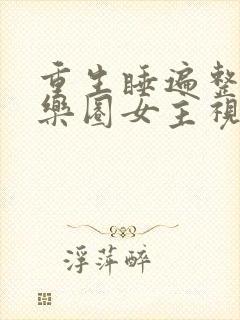 重生睡遍整
樂園女主視
浮萍醉